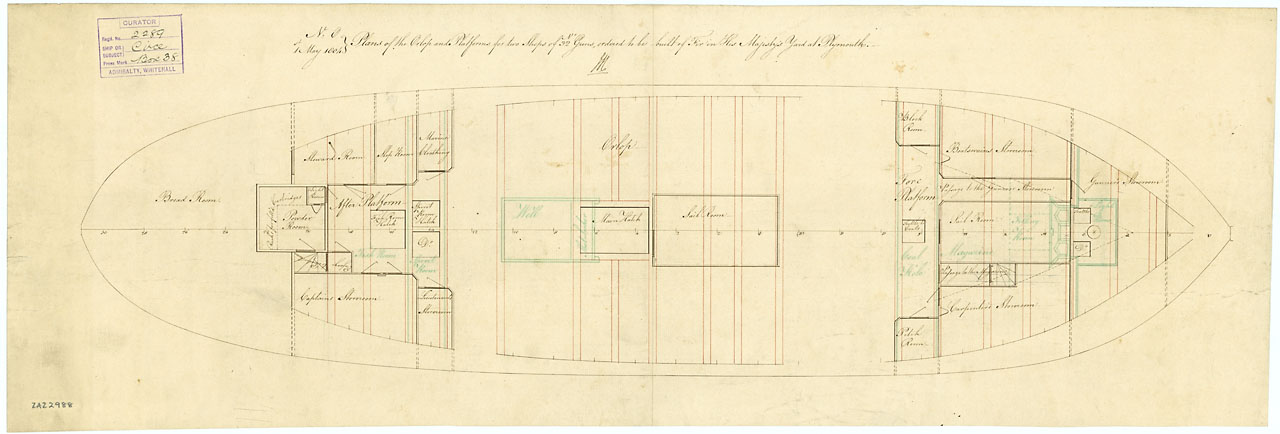 CURATOR
Regd. No. 2289
SHIP OR SUBJECT Circe
Press Mark Box 38
ADMIRALTY, WHITEHALL
Plans of the Orlop and Platforms for two Ships of 32 Guns, ordered to be built of Fir in His Majesty's Yard at Plymouth.
May 1804
Bread Room
Steward Room
Slop Room
Marine Clothing
After Platform
Powder Room
Fish Room
Spirit Room Hatch
Do
Spirit Room
Captains Storeroom
Lieutenants Storeroom
Orlop
Well
Main Hatch
Sail Room
Block Room
Fore Platform
Coal Hole
Pitch Room
Boatswains Storeroom
Passage to the Gunners Storeroom
Sail Room
Magazine
Filling Room
Passage to the
Carpenters Storeroom
Gunners Storeroom
Do
ZAZ2988